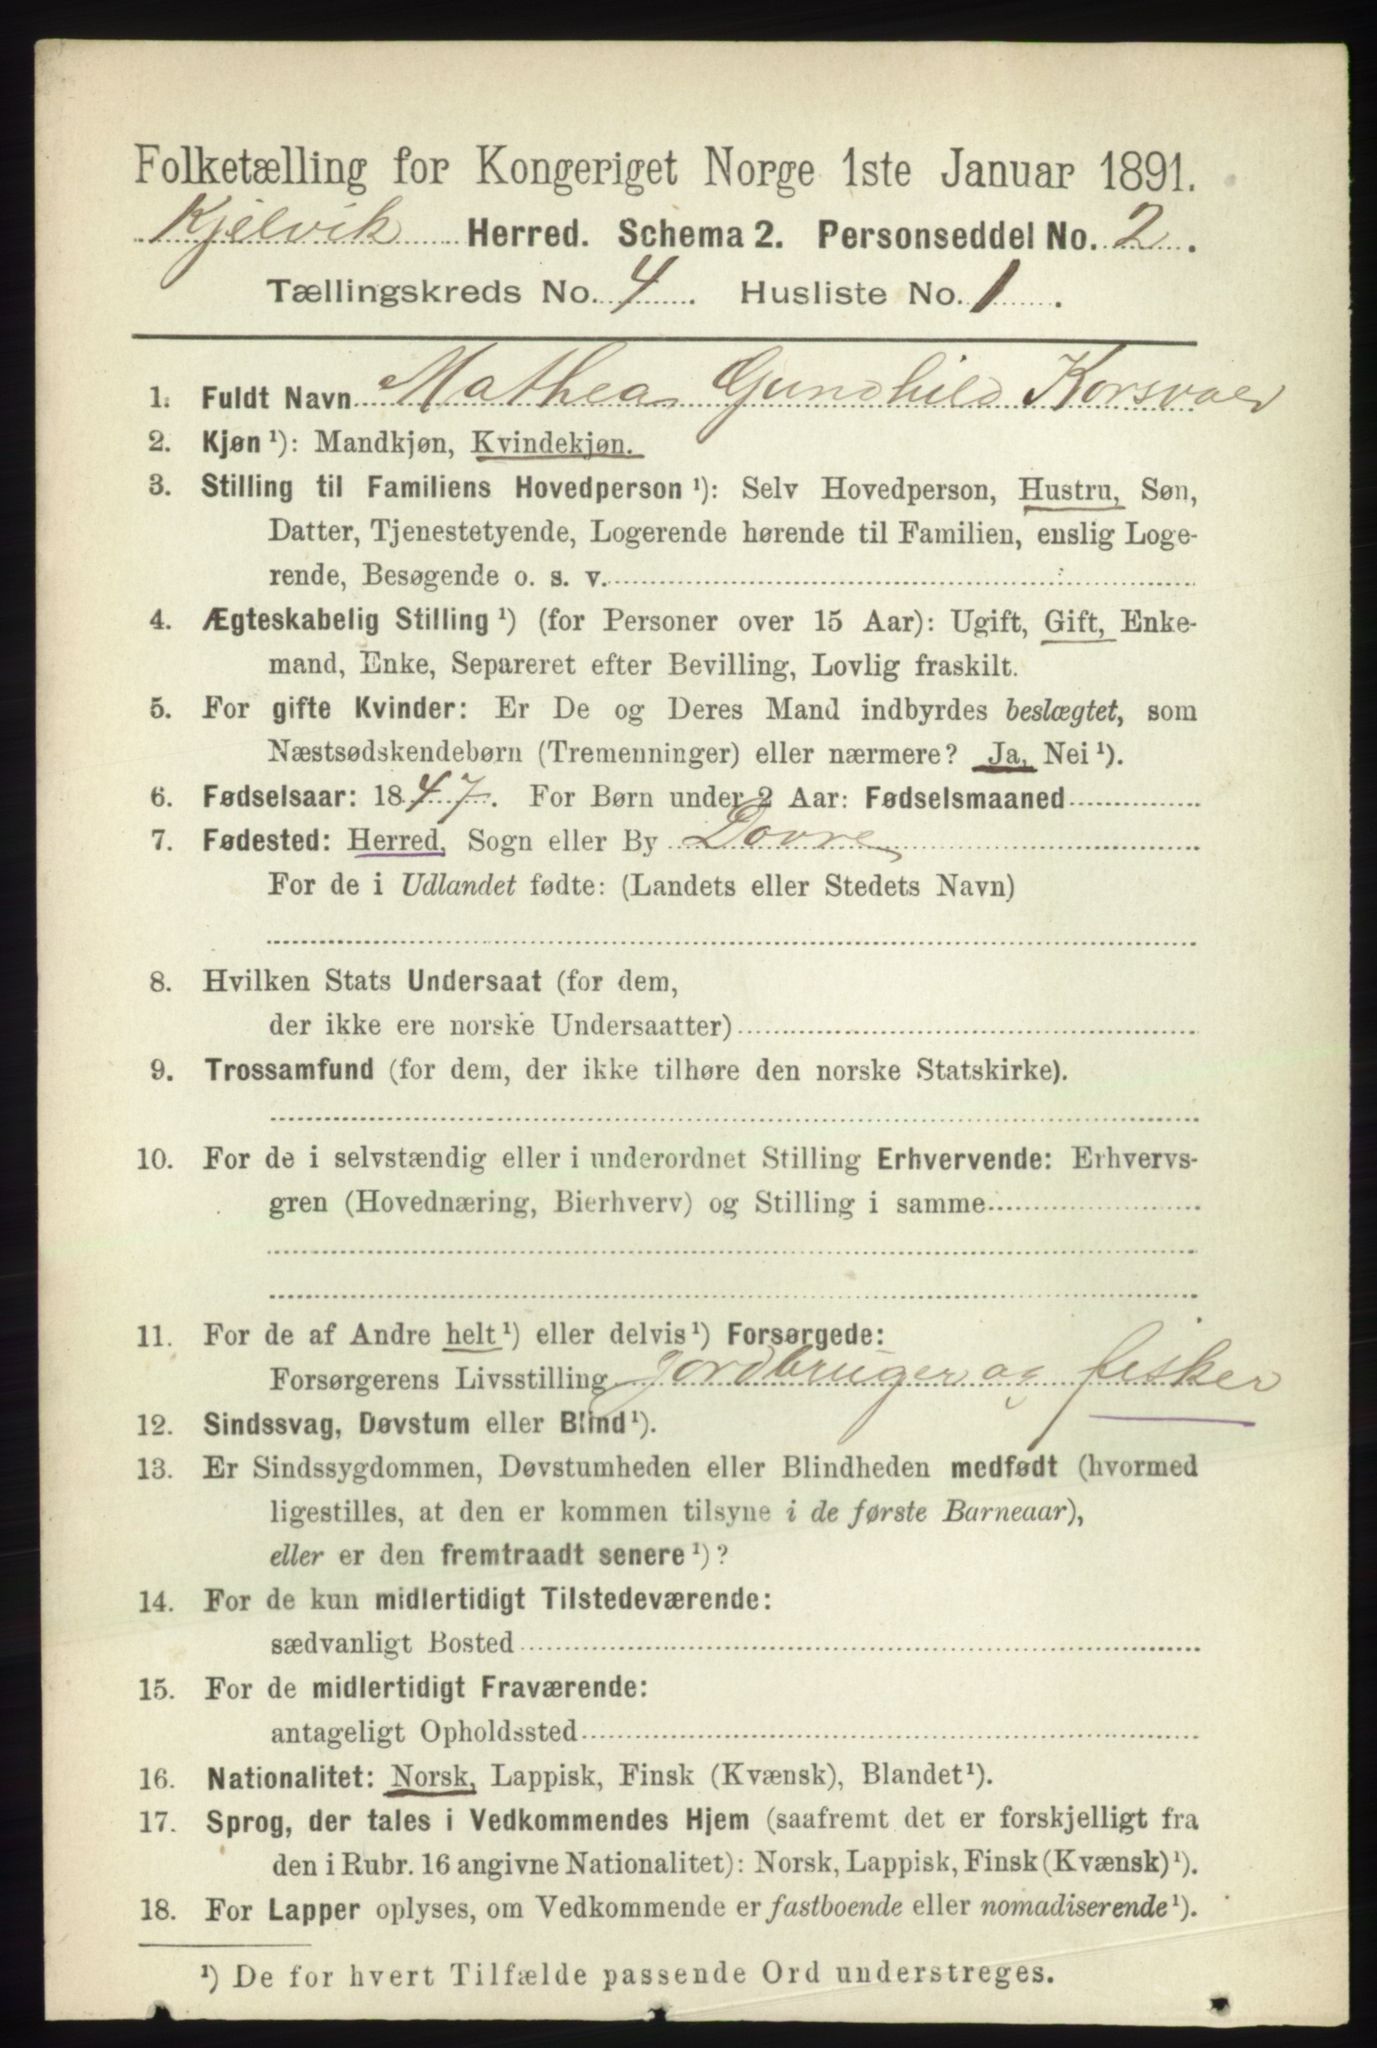 Folketælling for Kongeriget Norge 1ste Januar 1891.
Kjelvik Herred. Schema 2. Personseddel No. 2.
Tællingskreds No. 4. Husliste No. 1.
1. Fuldt Navn Mathea Gunhild Korsvaer
2. Kjøn ¹): Mandkjøn, Kvindekjøn.
3. Stilling til Familiens Hovedperson ¹): Selv Hovedperson, Hustru, Søn,
Datter, Tjenestetyende, Logerende hørende til Familien, enslig Loge-
rende, Besøgende o. s. v.
4. Ægteskabelig Stilling ¹) (for Personer over 15 Aar): Ugift, Gift, Enke-
mand, Enke, Separeret efter Bevilling, Lovlig fraskilt.
5. For gifte Kvinder: Er De og Deres Mand indbyrdes beslægtet, som
Næstsødskendebørn (Tremenninger) eller nærmere? Ja, Nei ¹).
6. Fødselsaar: 1847. For Børn under 2 Aar: Fødselsmaaned
7. Fødested: Herred, Sogn eller By Dovre
For de i Udlandet fødte: (Landets eller Stedets Navn)
8. Hvilken Stats Undersaat (for dem,
der ikke ere norske Undersaatter)
9. Trossamfund (for dem, der ikke tilhøre den norske Statskirke).
10. For de i selvstændig eller i underordnet Stilling Erhvervende: Erhvervs-
gren (Hovednæring, Bierhverv) og Stilling i samme
11. For de af Andre helt ¹) eller delvis ¹) Forsørgede:
Forsørgerens Livsstilling Jordbruger og fisker
12. Sindssvag, Døvstum eller Blind ¹).
13. Er Sindssygdommen, Døvstumheden eller Blindheden medfødt (hvormed
ligestilles, at den er kommen tilsyne i de første Barneaar),
eller er den fremtraadt senere ¹)?
14. For de kun midlertidigt Tilstedeværende:
sædvanligt Bosted
15. For de midlertidigt Fraværende:
antageligt Opholdssted
16. Nationalitet: Norsk, Lappisk, Finsk (Kvænsk), Blandet ¹).
17. Sprog, der tales i Vedkommendes Hjem (saafremt det er forskjelligt fra
den i Rubr. 16 angivne Nationalitet): Norsk, Lappisk, Finsk (Kvænsk) ¹).
18. For Lapper oplyses, om Vedkommende er fastboende eller nomadiserende ¹).
¹) De for hvert Tilfælde passende Ord understreges.